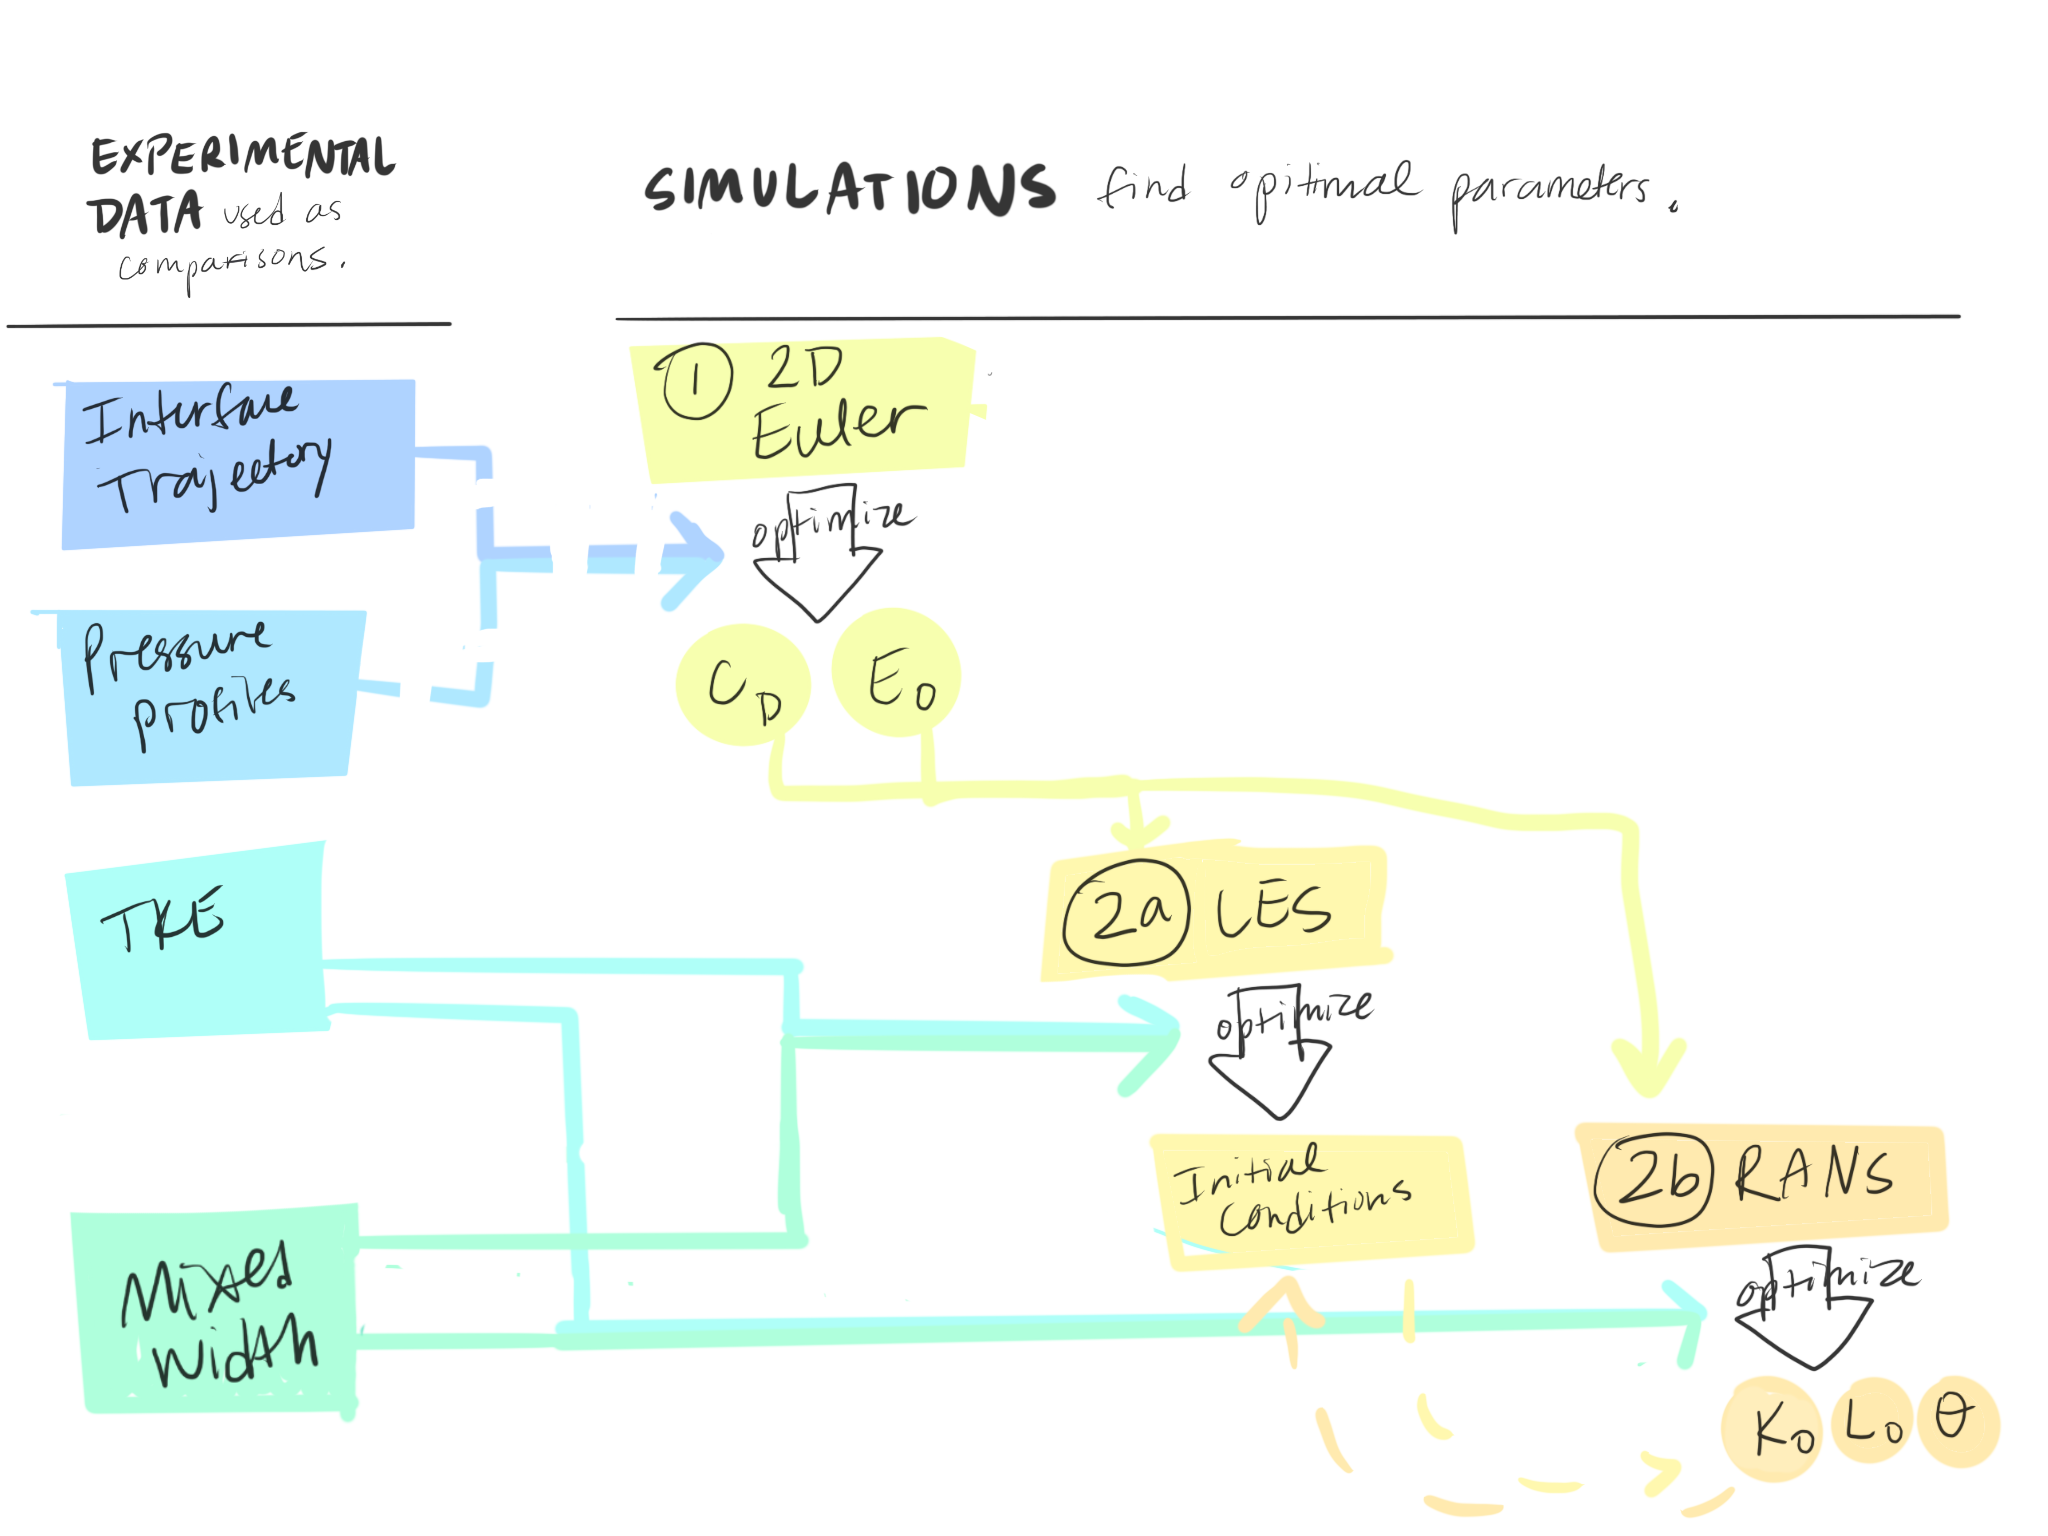 EXPERIMENTAL
DATA used as
comparisons.
SIMULATIONS find opitimal parameters.
Interface
Trajectory
Pressure
profiles
TKE
Mixed
Width
1 2D
Euler
optimize
C_D E_0
2a LES
optimize
Initial
Conditions
2b RANS
optimize
K_0 L_0 θ